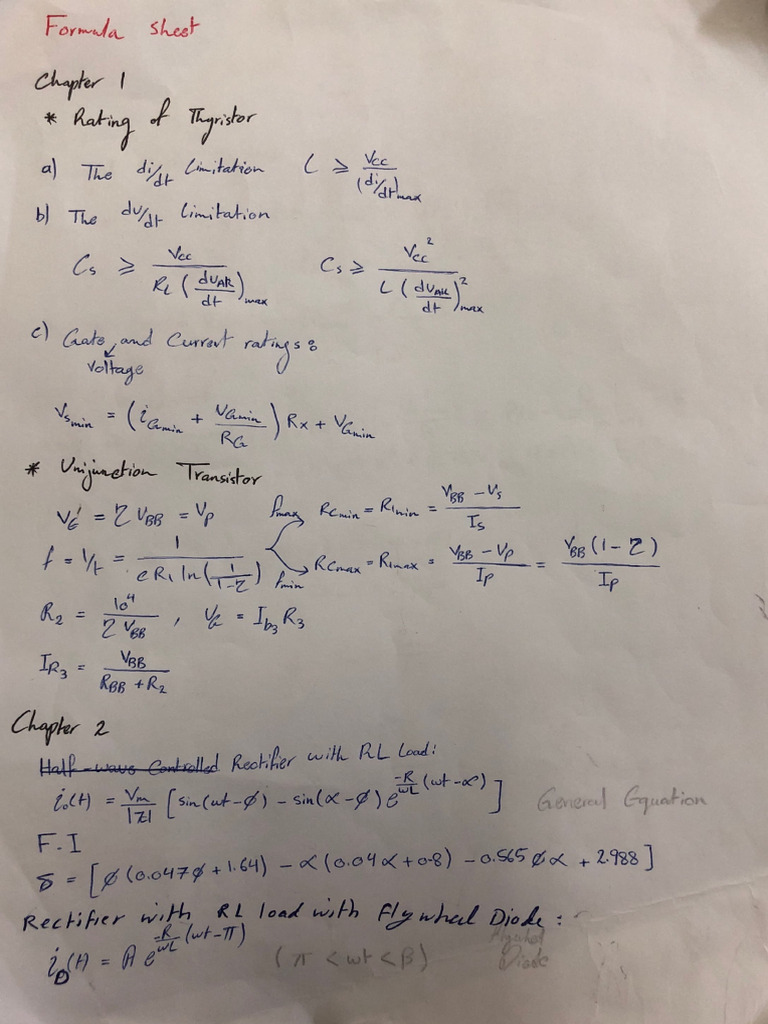 Formula sheet
Chapter 1
* Rating of Thyristor
a) The di/dt Limitation L ≥ Vcc / (di/dt)max
b) The du/dt Limitation
Cs ≥ Vcc / (RL (dvAK/dt)max) Cs ≥ Vcc² / (L (dvAK/dt)²max)
c) Gate, and Current ratings:
voltage
Vsmin = (iGmin + VGmin/RG) Rx + VGmin
* Unijunction Transistor
VE' = η VBB = Vp fmax RCmin = R1min = (VBB - Vs) / Is
f = 1/t = 1 / (cR1 ln(1/(1-η))) fmin RCmax = R1max = (VBB - Vp) / Ip = VBB(1-η) / Ip
R2 = 10⁴ / (η VBB) , VG = Ib3 R3
IR3 = VBB / (RBB + R2)
Chapter 2
Half-wave Controlled Rectifier with RL Load:
io(t) = Vm/|Z| [sin(wt-ϕ) - sin(α-ϕ) e^(-R/wL (wt-α))] General Equation
F.I
δ = [ϕ(0.047ϕ+1.64) - α(0.04α+0.8) - 0.565ϕα + 2.988]
Rectifier with RL load with Flywheel Diode:
iD(t) = A e^(-R/wL (wt-π)) (π < wt < β) Flywheel
Diode